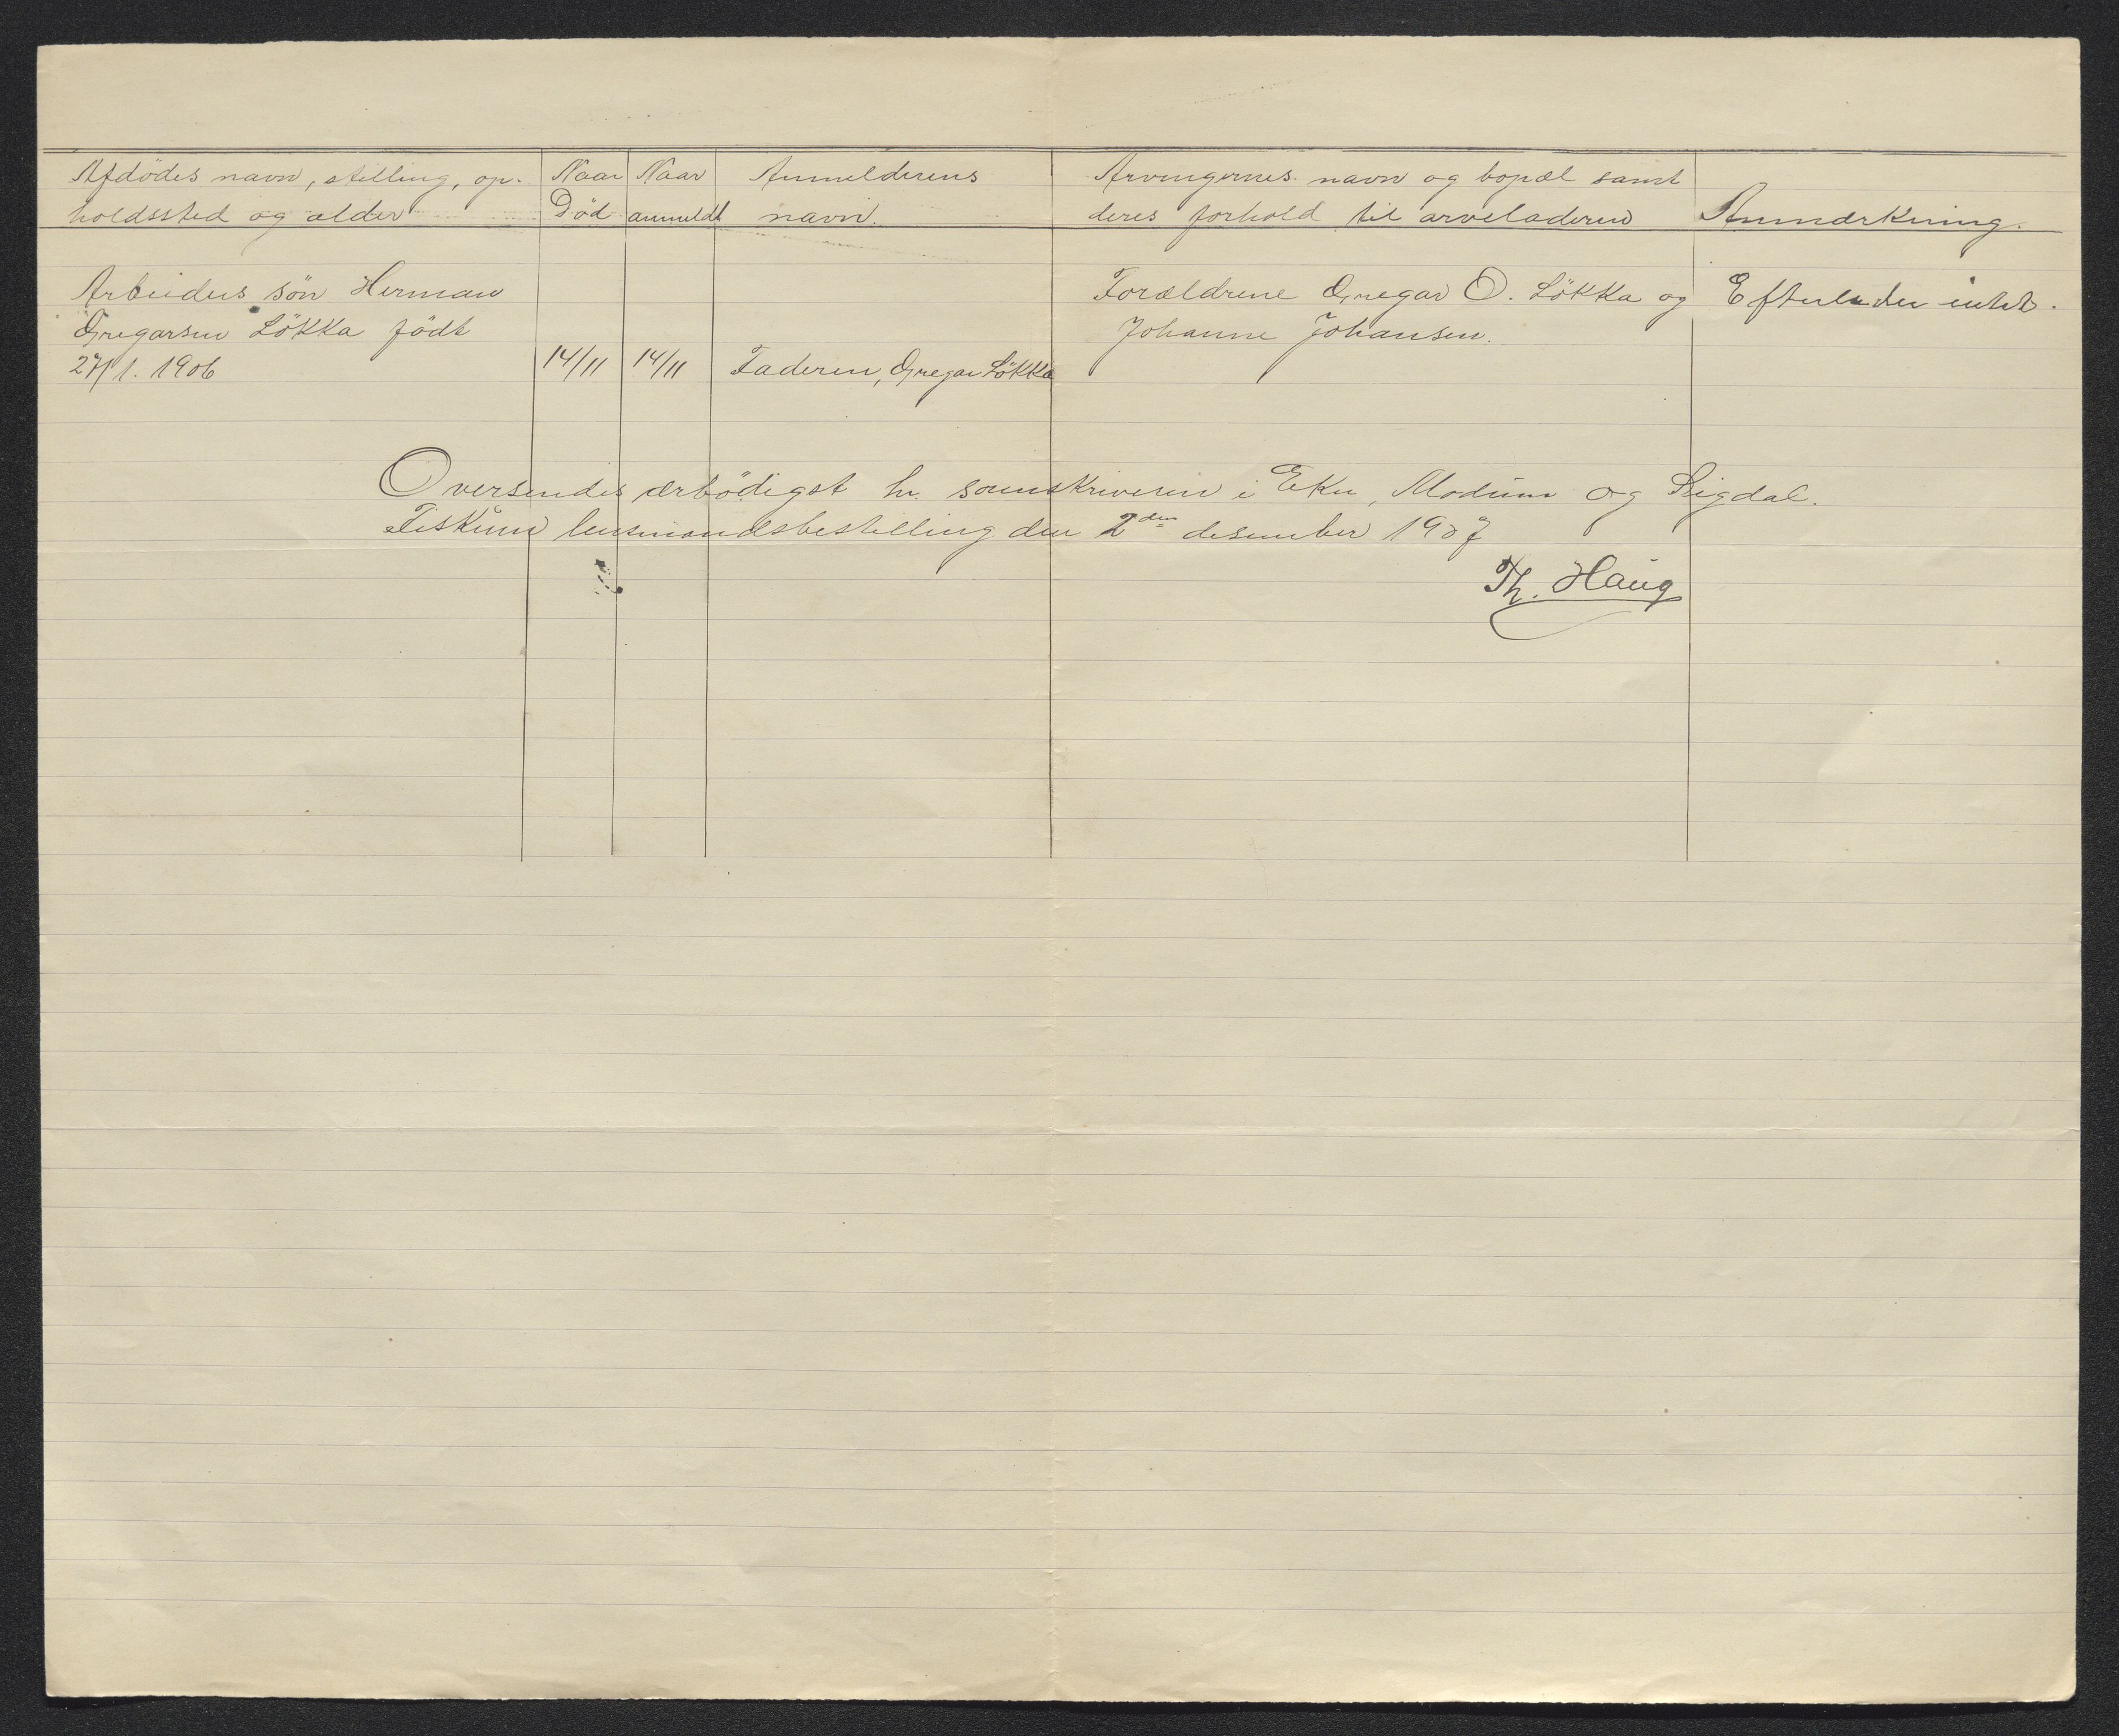 Afdödes navn, stilling, op-
holdssted og alder
Naar
Död
Naar
anmeldt
Anmelderens
navn.
Arvingernes navn og bopæl samt
deres forhold til arveladeren
Anmærkning.
Arbeiders sön Herman
Gregarsen Lökka födt
27/1. 1906
14/11
14/11
Faderen, Gregar Lökka
Forældrene Gregar O. Lökka og
Johanne Johansen.
Efterlader intet.
Oversendes ærbödigst hr. sorenskriveren i Eker, Modum og Sigdal.
Fiskum lensmandsbestilling den 2den desember 1907
Th. Haug